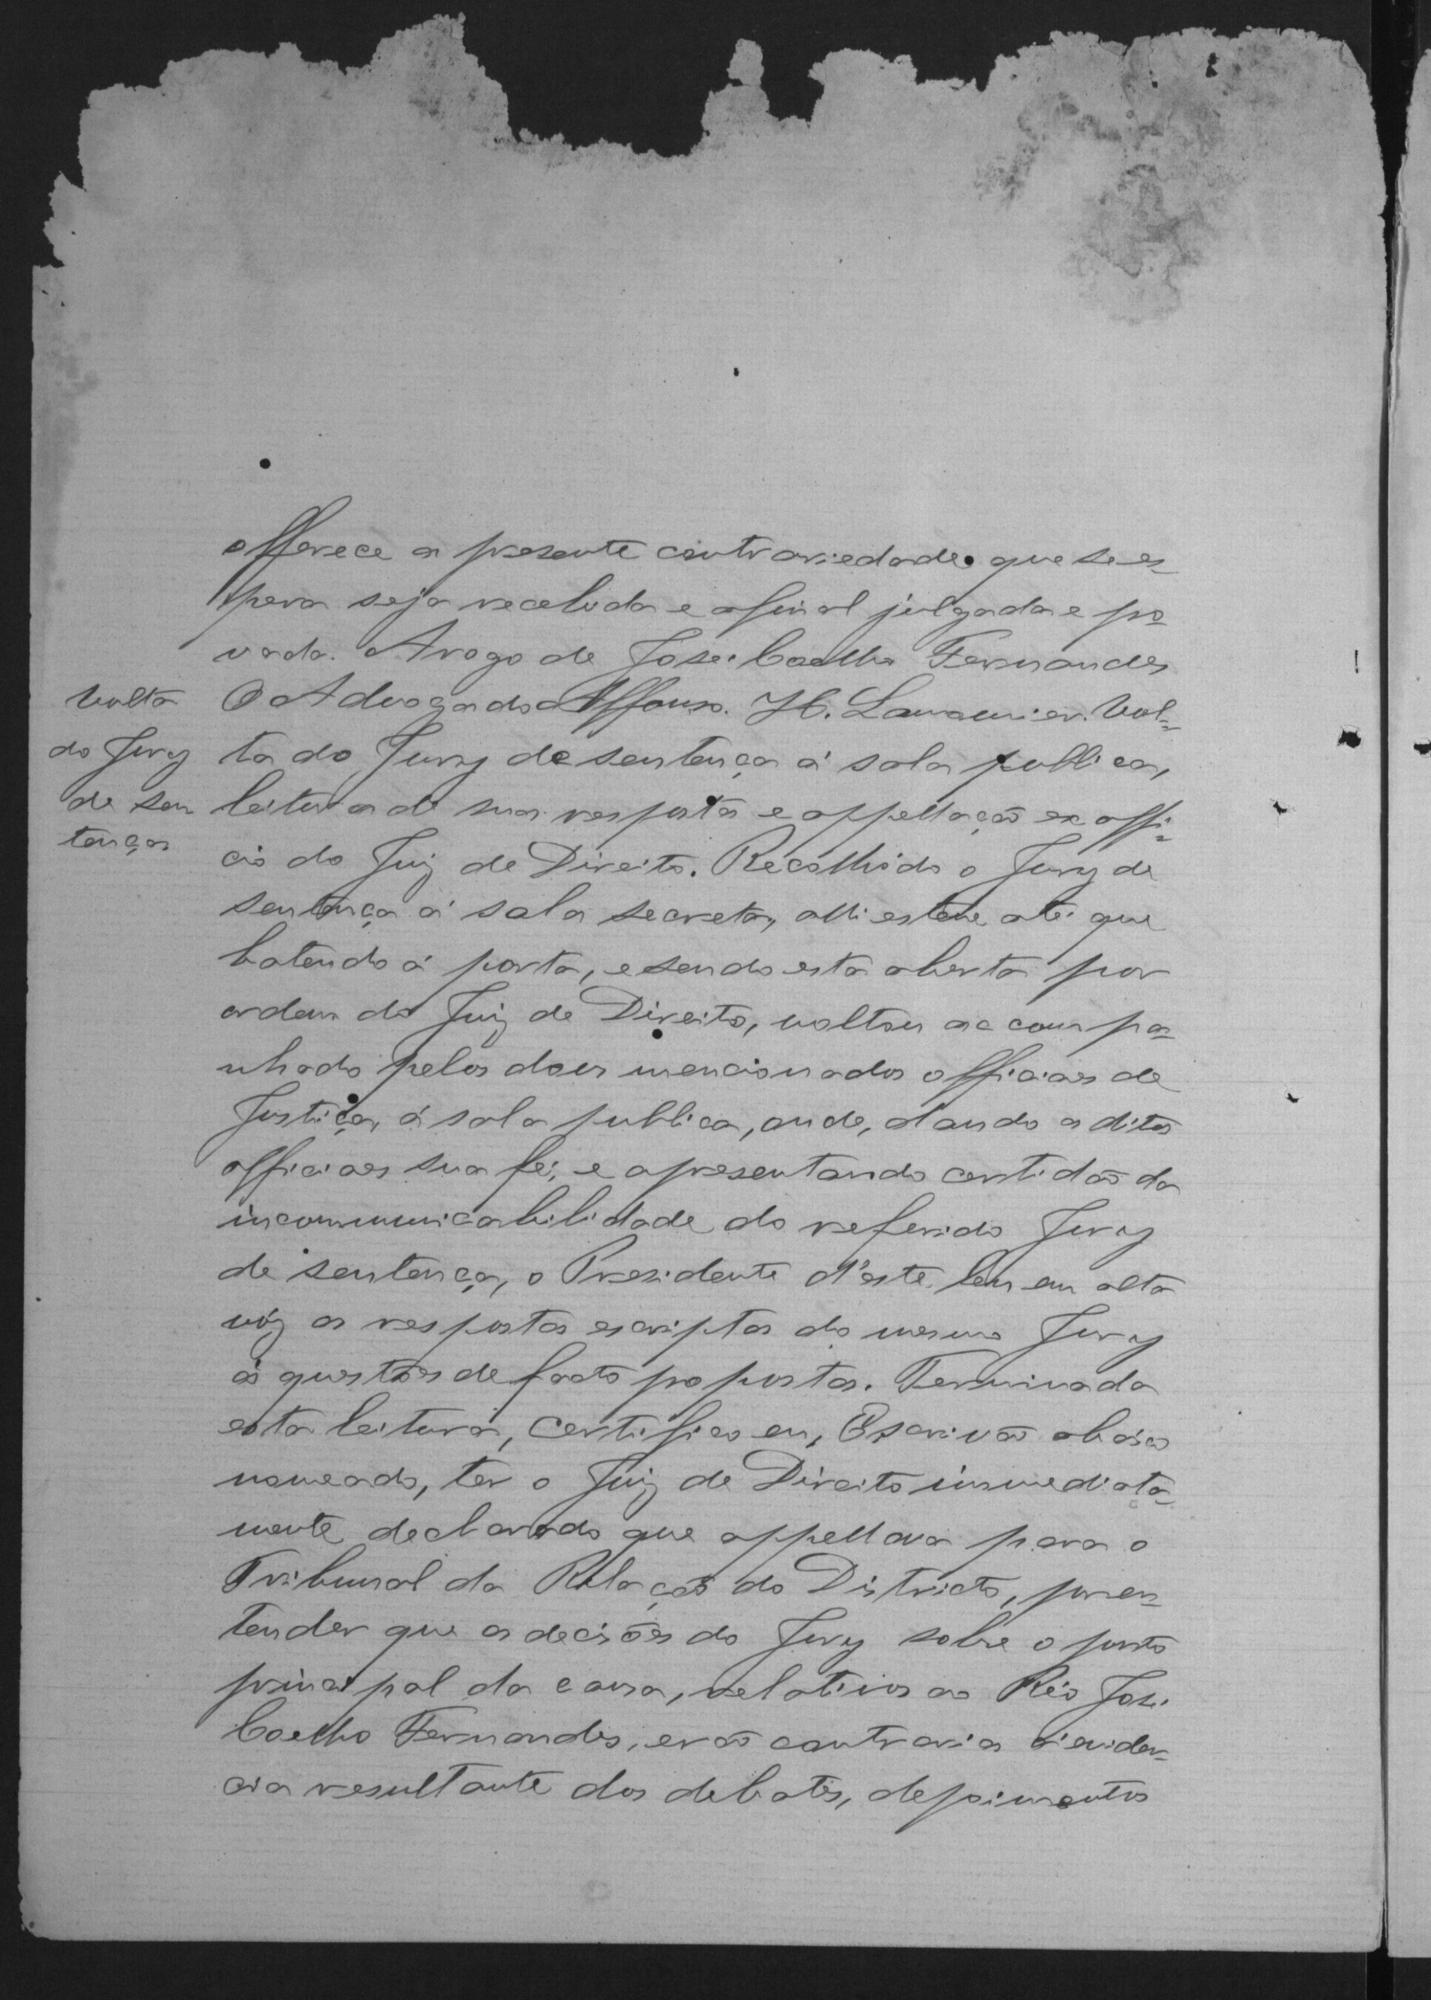 offerece a presente contrariedade que se es-
pera seja recebida e afinal julgada e pro-
vada. A rogo de José Coelho Fernandes
O Advogado Affonso. H. Vol-
ta do Jury de sentença á sala publica,
leitura de sua resposta e appellação ex offi-
cio do Juiz de Direito. Recolhido o Jury de
sentença á sala secreta, alli esteve até que
batendo á porta, e sendo esta aberta por
ordem do Juiz de Direito, voltou accompa-
nhado pelos dous mencionados officiaes de
Justiça, á sala publica, onde, dando os ditos
officiaes sua fé, e apresentando certidão da
incommunicabilidade do referido Jury
de sentença, o Presidente d'este leu em alta
vóz as respostas escriptas do mesmo Jury
ás questões de facto propostas. Terminada
esta leitura, certifico eu, Escrivão abaixo
nomeado, ter o Juiz de Direito immediata-
mente declarado que appellava para o
Tribunal da Relação do Districto, por en-
tender que as decisões do Jury sobre o ponto
principal da causa, relativos ao Réo José
Coelho Fernandes, erão contrarias á eviden-
cia resultante dos debates, depoimentos
Volta
do Jury
de sen
tença